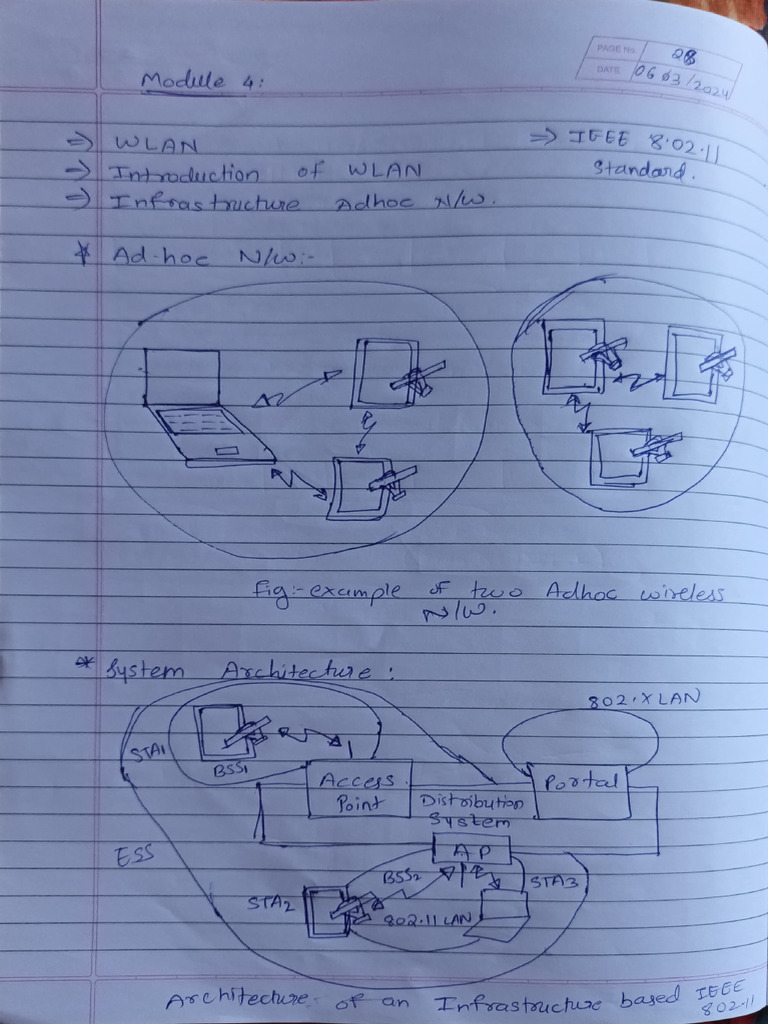 PAGE No. 28
DATE 06 03/2024
Module 4:
⇒ WLAN
⇒ IEEE 8.02.11 Standard.
⇒ Introduction of WLAN
⇒ Infrastructure Adhoc N/W.
* Ad-hoc N/W:-
Fig:- example of two Adhoc wireless
N/W.
* System Architecture:
802.X LAN
STA1
BSS1
Access Point
Distribution System
Portal
ESS
AP
BSS2
STA3
STA2
802.11 LAN
Architecture of an Infrastructure based IEEE
802.11